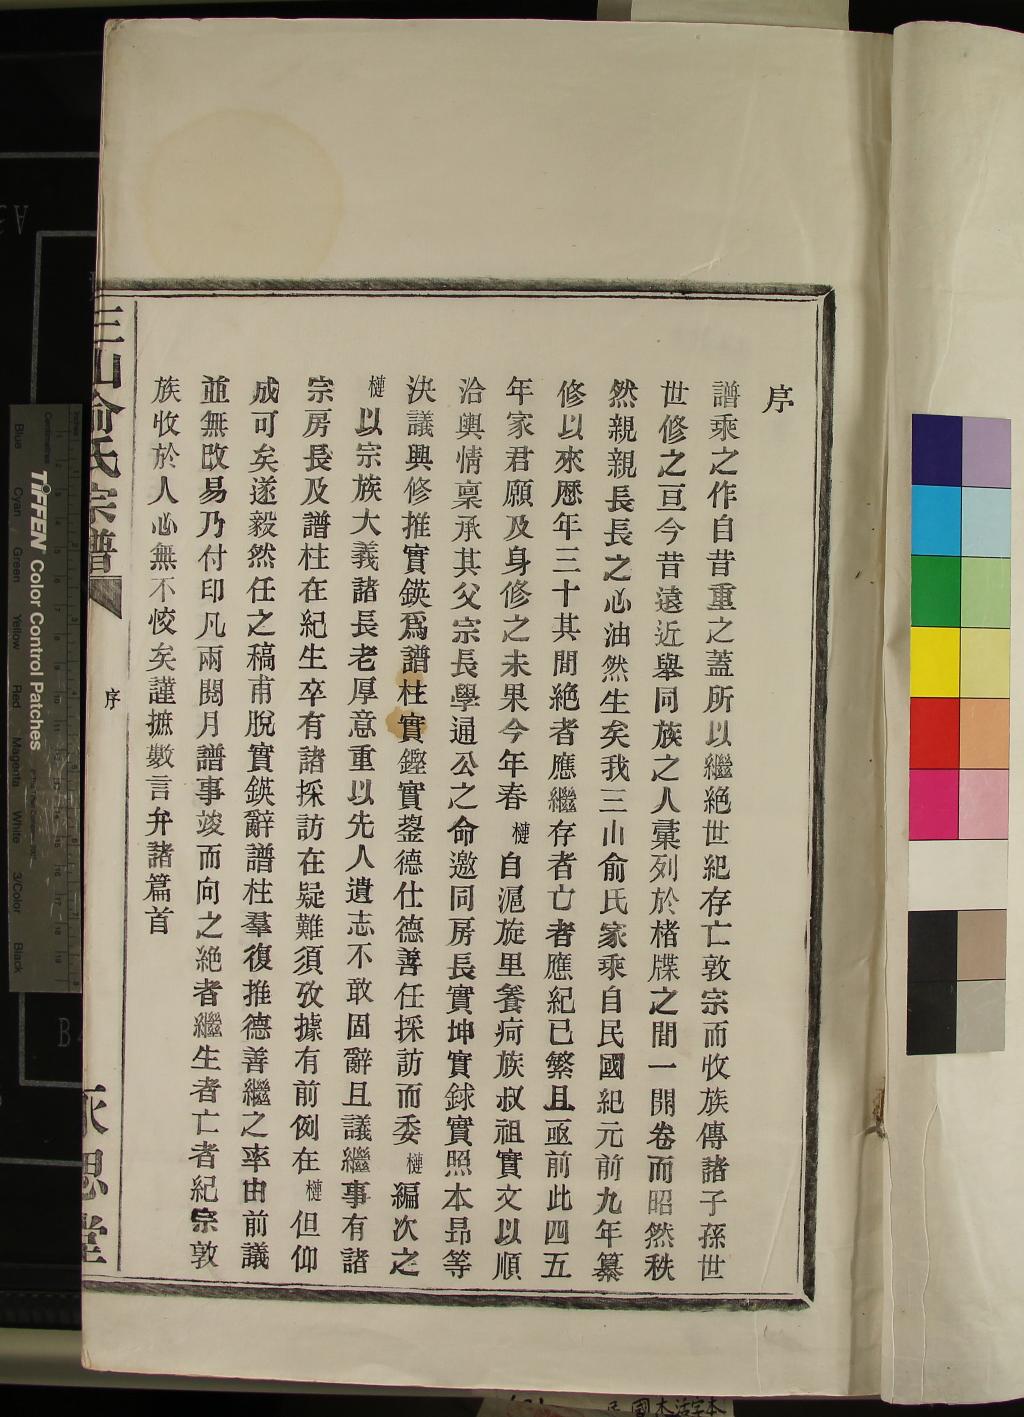 序
譜乘之作自昔重之蓋所以繼絕世紀存亡敦宗而收族傳諸子孫世
世修之亘今昔遠近舉同族之人彙列於楮牒之間一開卷而昭然秩
然親親長長之心油然生矣我三山俞氏家乘自民國紀元前九年纂
修以來歷年三十其間絕者應繼存者亡者應紀已繁且亟前此四五
年家君願及身修之未果今年春槤自滬旋里養疴族叔祖實文以順
洽輿情稟承其父宗長學通公之命邀同房長實坤實銶實照本昂等
決議興修推實鍈爲譜柱實鏗實鋆德仕德善任採訪而委槤編次之
槤以宗族大義諸長老厚意重以先人遺志不敢固辭且議繼事有諸
宗房長及譜柱在紀生卒有諸採訪在疑難須攷據有前例在槤但仰
成可矣遂毅然任之稿甫脫實鍈辭譜柱羣復推德善繼之率由前議
並無改易乃付印凡兩閱月譜事竣而向之絕者繼生者亡者紀宗敦
族收於人心無不恔矣謹摭數言弁諸篇首
三山俞氏宗譜
序
永思堂
TIFFEN Color Control Patches
Centimetres
Blue
Cyan
Green
Yellow
Red
Magenta
White
3/Color
Black
民國木活字本